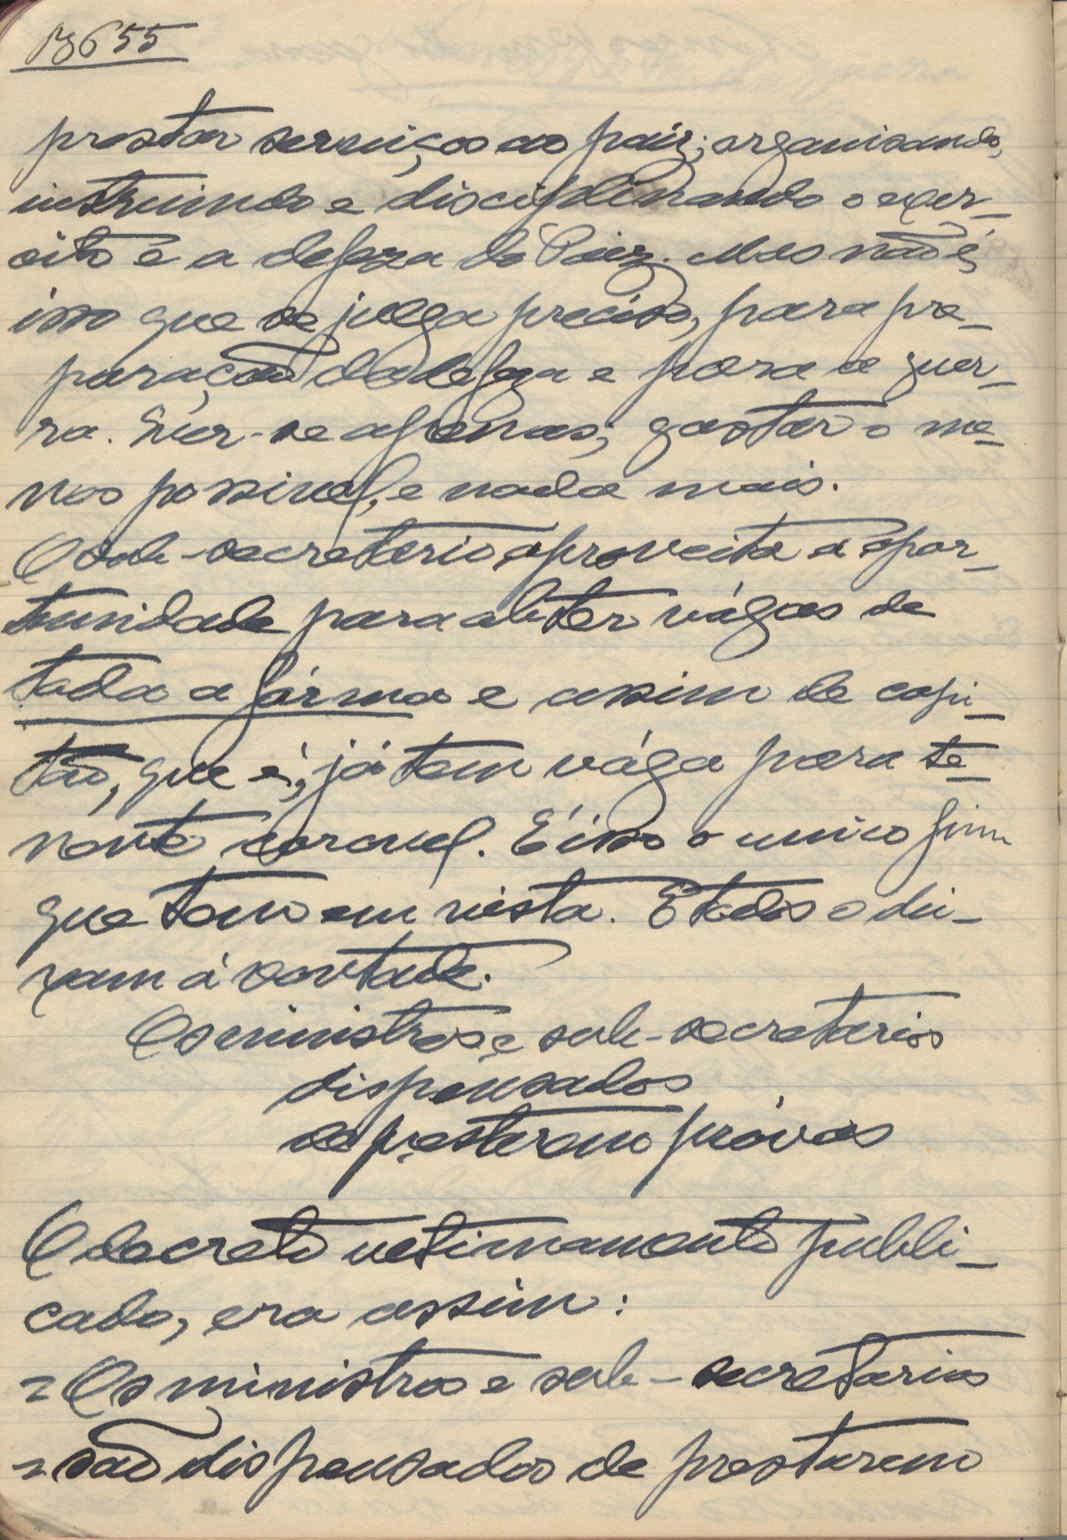 3655
prestar serviços ao paiz; organisando,
instruindo e disciplinando o exer-
cito e a defeza do Paiz. Mas não é,
isso que se julga preciso, para pre-
paração da defeza e para a guer-
ra. Quer-se apenas; gastar o me-
nos possivel, e nada mais.
O sub-secretario aproveita a opor-
tunidade para abrir vágas de
toda a fórma e assim de capi-
tão, que é, já tem vága para te-
nente coronel. É isso o unico fim
que tem em vista. E todos o dei-
xam á vontade.
Os ministros e sub-secretarios
dispensados
de prestarem próvas
O decreto ultimamente publi-
cado, era assim:
= Os ministros e sub-secretarios
= são dispensados de prestarem